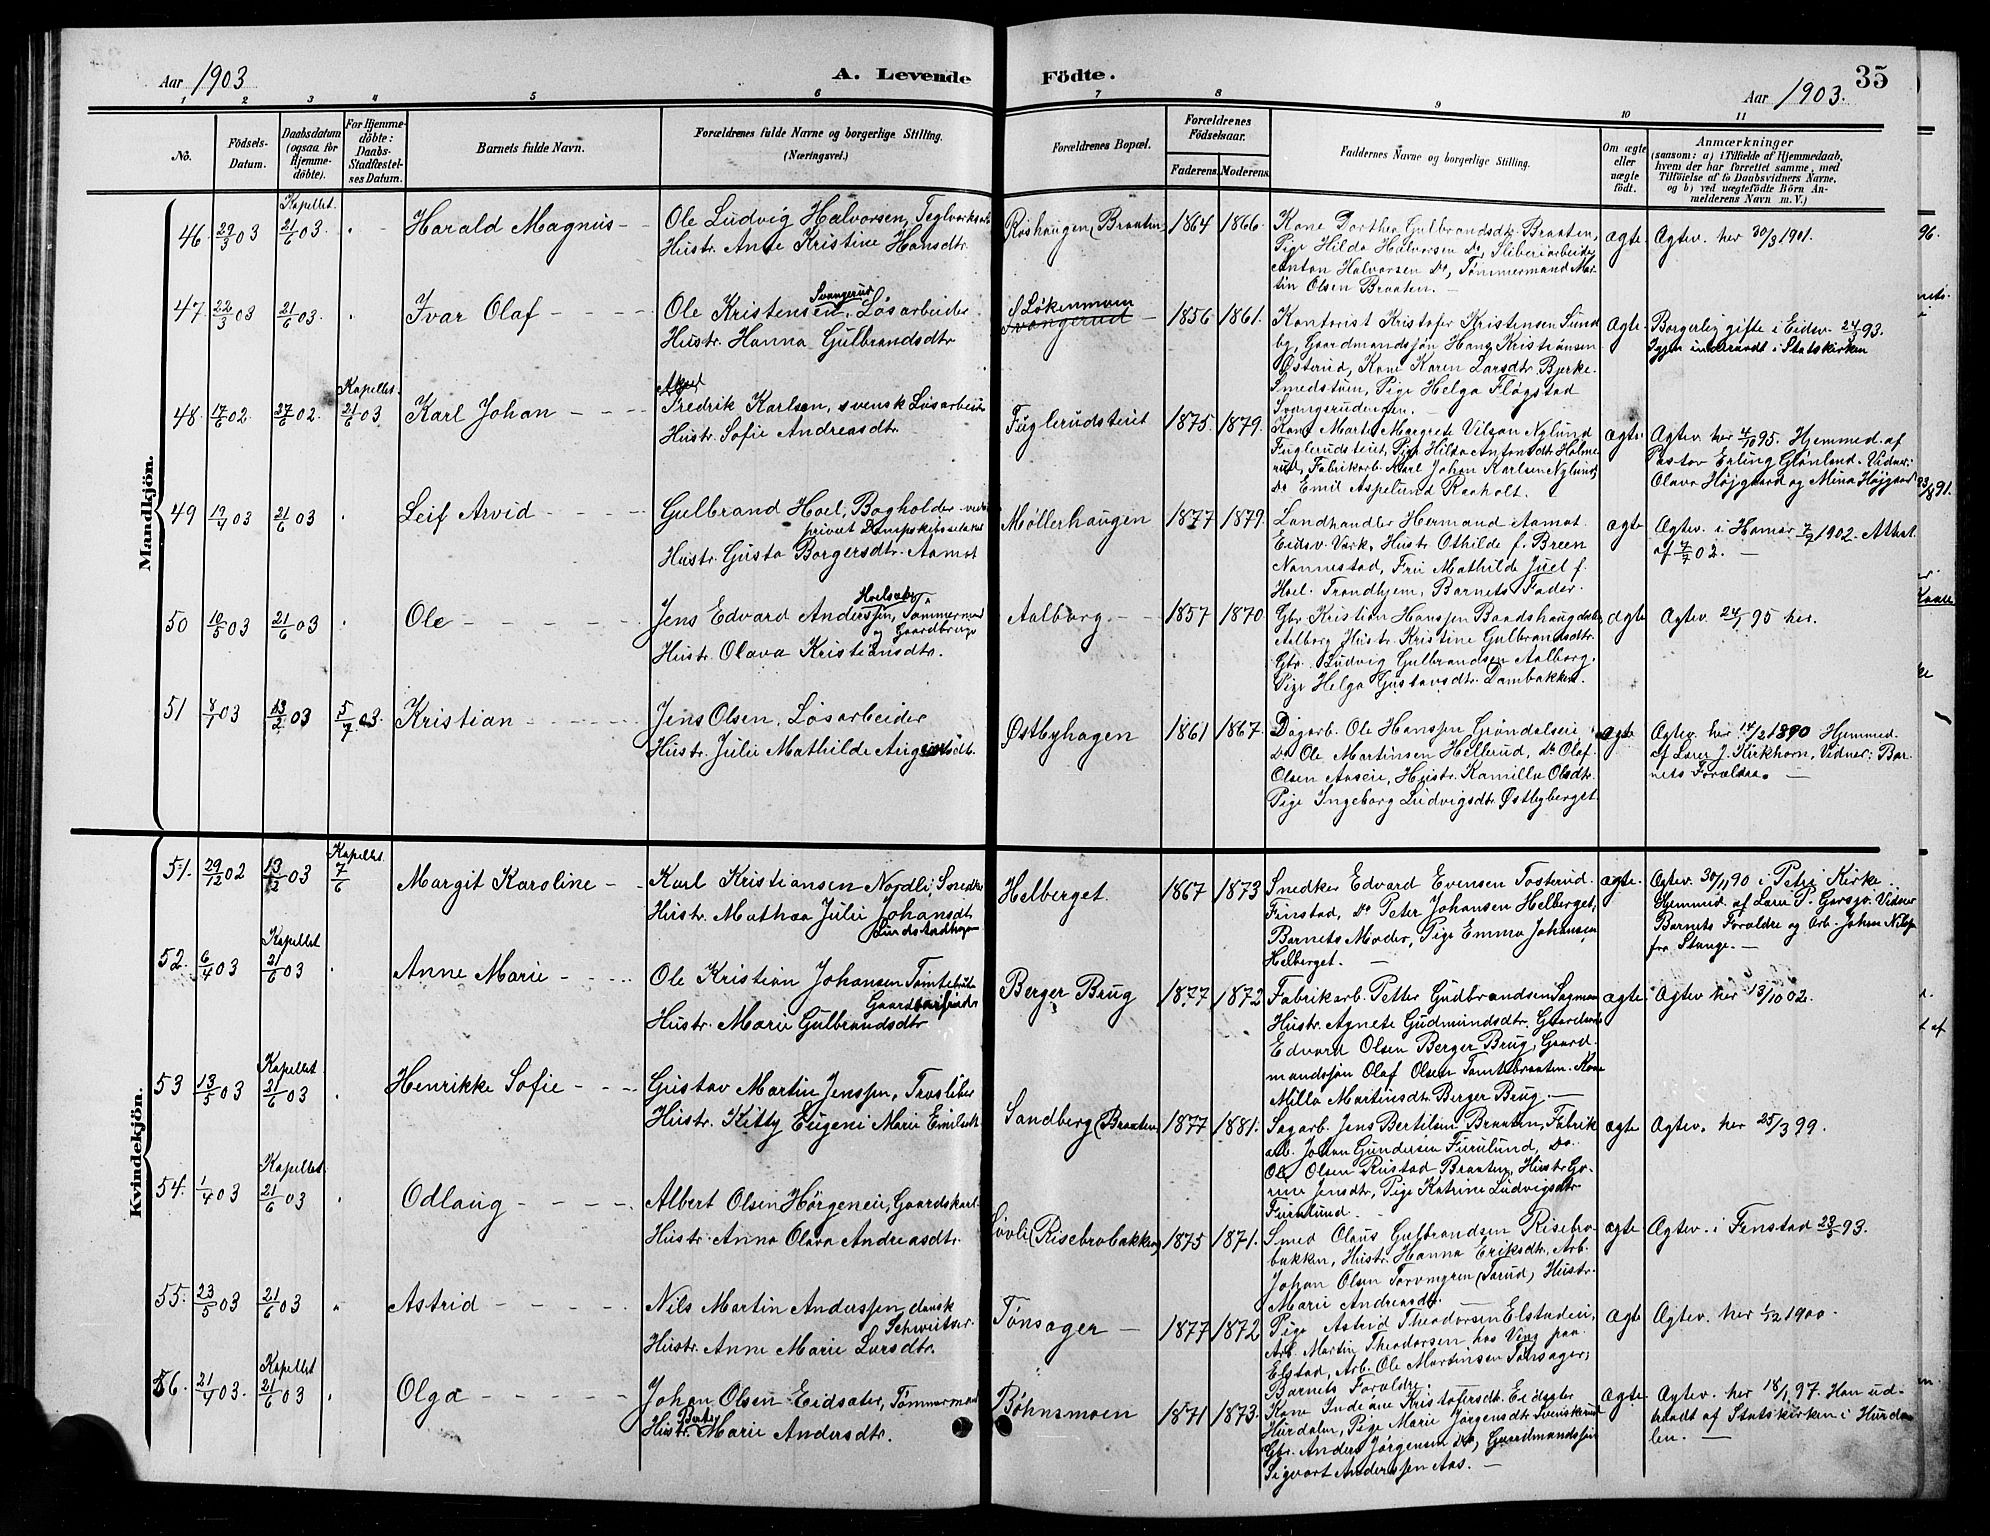 Aar 1903
A. Levende
Födte.
Aar 1903.
35
1 2 3 4 5 6 7 8 9 10 11
No.
Födsels-
Datum.
Daabsdatum
(ogsaa for
Hjemme-
döbte).
For Hjemme-
döbte:
Daabs-
Stadfæstel-
ses Datum.
Barnets fulde Navn.
Forældrenes fulde Navne og borgerlige Stilling.
(Næringsvei.)
Forældrenes Bopæl.
Forældrenes
Födselsaar.
Faderens. Moderens.
Faddernes Navne og borgerlige Stilling.
Om ægte
eller
uægte
födt.
Anmærkninger
(saasom: a) i Tilfælde af Hjemmedaab,
hvem der har forrettet samme, med
Tilföielse af to Daabsvidners Navne,
og b) ved uægtefödte Börn An-
melderens Navn m. V.)
Mandkjön.
46. 29/3 03
Kapellet
21/6 03.
Harald Magnus
Ole Ludvig Halvorsen, Teglverksarb
Hustr. Anne Kristine Hansdtr
Roshaugen (Braaten)
1864 1866.
Kone Dorthea Gulbrandsdtr. Braaten,
Pige Hilda Halvorsen Do, Sliberiarbeider
Anton Halvorsen Do, Tømmermand Mar-
tin Olsen Braaten.
ægte
Ægtev. her 30/3 1901.
47. 22/3 03 21/6 03.
Ivar Olaf
Ole Kristensen Svangerud, Løsarbeider
Hustr. Hanna Gulbrandsdtr
Løkenmoen
Svangerud
1856 1861.
Kontorist Kristofer Kristensen Sund
by, Gaardmandssøn Hans Kristiansen
Østerud, Kone Karen Larsdtr. Bjerke
Smedstuen, Pige Helga Fløgstad
Svangsrudengen.
ægte
Borgerlig gifte i Eidsv. 24/5 93.
Igjen indtraadt i Statskirken
48. 17/6 02 27/6 02.
Kapellet
21/6 03
Karl Johan
Aksel
Fredrik Karlsen, svensk Løsarbeider
Hustr. Sofie Andreasdtr.
Fuglerudsteiet
1875. 1879.
Kone Marte Margrete Vilson Nylund
Fuglerudsteiet, Pige Hilda Antonsdtr Holme
rud, Fabrikarb. Karl Johan Karlsen Nylund,
Do Emil Aspelund Raaholt.
ægte
Ægtev. her 4/10 95. Hjemmed. af
Pastor Erling Grønland. Vidner:
Olava Højgaard og Mina Højgaard
49 19/4 03 21/6 03
Leif Arvid
Gulbrand Hoel, Bogholder ved
privat Dampskibsselskab
Hustr. Gusta Borgersdtr. Aamot
Møllerhaugen
1877 1879.
Landhandler Hermand Aamot
Eidsv. Værk, Hustr. Othilde f. Breen
Nannestad, Fru Mathilde Juel f.
Hoel. Trondhjem, Barnets Fader.
ægte
Ægtev. i Hamar 7/7 1902. Attest
af 7/7 02.
50 10/5 03 21/6 03
Ole
Jens Edvard Anderssen Hoelsaas, Tømmermand
og Gaardbruger
Hustr. Olava Kristiansdtr.
Aalborg.
1857 1870
Gbr. Kristian Hanssen Baadshaug
Aalborg Hustr. Kristine Gulbrandsdtr.
Gbr. Ludvig Gulbrandsen Aalborg.
Pige Helga Gustavsdtr. Dambakken.
ægte
Ægtev. 24/1 95 her.
51 8/1 03 13/2 03 5/7 03.
Kristian
Jens Olsen, Løsarbeider
Hustr. Julie Mathilde
Østbyhagen
1861 1867.
Dagarb. Ole Hanssen Grøndalseie
Do Ole Martinsen Hellerud, Do Olaf
Olsen Aaseie, Hustr. Kamilla Olsdtr.
Pige Ingeborg Ludvigsdtr. Østbyberget
ægte
Ægtev. her 14/2 1890 Hjemmed.
af Lærer J. Kirkhorn. Vidner: Bar-
nets Forældre.
Kvindekjön.
51. 29/12 02 13/2 03
Kapellet
7/6
Margit Karoline
Karl Kristiansen Nordli, Snedker
Hustr. Mathea Julie Johansdtr
Lundstadhagen
Helberget.
1867 1873
Snedker Edvard Evensen Tosterud
Finstad, Do Peter Johansen Helberget,
Barnets Moder, Pige Emma Johansen
Helberget.
ægte
Ægtev. 30/11 90 i Petri Kirke
Hjemmed. af Lærer P. Garsjo. Vidner
Barnets Forældre og Arb. Johan Nilssen
fra Stange.
52. 6/4 03
Kapellet
21/6 03
Anne Marie
Ole Kristian Johansen Tomtebraaten
Gaardarbeider
Hustr. Marie Gulbrandsdtr
Berger Brug
1877 1872
Fabrikarb. Petter Gudbrandsen Sagmoen
Hustr. Agnete Gudmundsdtr. Gaardmand
Edvard Olsen Berger Brug, Gaard-
mandssøn Olaf Olsen Tomtebraaten. Kone
Milla Martinsdtr. Berger Brug.
ægte
Ægtev her 13/10 02.
53 13/5 03
Kapellet
21/6 03
Henrikke Sofie
Gustav Martin Jenssen, Træsliber
Hustr. Kitty Eugeni Marie Emilsdtr
Sandberg (Braaten)
1877 1881.
Sagarb. Jens Bertilsen Braaten, Fabrik
arb. Johan Gundersen Furulund, Do
Ole Olsen Rustad Braaten, Hustr. Go-
rine Jensdtr, Pige Katrine Ludvigsdtr
Furulund.
ægte
Ægtev. her 25/3 99.
54. 1/4 03
Kapellet
21/6 03
Odlaug
Albert Olsen Hørgeneie, Gaardskarl
Hustr. Anna Olava Andreasdtr.
Løvli (Risebrobakken)
1875 1871.
Smed Olaus Gulbrandsen Risebro-
bakken, Hustr. Hanna Eriksdtr. Arb.
Johan Olsen Torvmyren (Tærud) Hustr.
Marie Andreasdtr.
ægte
Ægtev. i Fenstad 23/5 93.
55. 23/5 03 21/6 03
Astrid
Nils Martin Anderssen, dansk
Schweitser
Hustr. Anne Marie Larsdtr.
Tønsager
1877 1872
Pige Astrid Theodorsen Elstadeie,
Arb. Martin Theodorsen hos Veng paa
Elstad, Arb. Ole Martinsen Tønsager,
Barnets Forældre.
ægte
Ægtev. her 1/12 1900.
56. 21/4 03.
Kapellet
21/6 03
Olga
Johan Olsen Eidsater, Tømmermand
Hustr. Berte Marie Andersdtr.
Bøhnsmoen
1871 1873.
Kone Indiane Kristofersdtr. Eidsater
Hurdalen, Pige Marie Jørgensdtr Svenskerud
Gbr. Anders Jørgensen Do, Gaardmandssøn
Sigvart Anderssen Aas.
ægte
Ægtev. her 18/1 97. Han ud-
traadt af Statskirken i Hurda-
len.